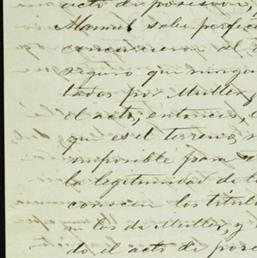 acto de posesion,
Manuel sabe perfec
concurrieron al
seguro que ningu
tados por Muller,
el acto, entonces,
que es el terreno
imposible para
la legitimidad de l
conocen los titul
los de Muller, y
do el acto de pose